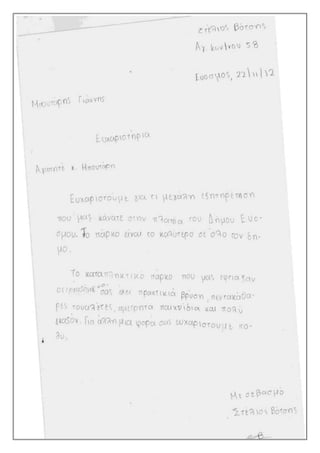 Στέλιος Βότσης
Αγ. Κων/νου 58
Ευοσμος, 22/11/12
Μπουταρης Γιάννης
Ευχαριστήρια
Αγαπητέ κ. Μπουτάρη
Ευχαριστούμε για τι μεγάλη εξηπηρέτηση
που μας κάνατε στην πλατεία του Δήμου Ευό-
σμου. Το πάρκο είναι το καλύτερο σε όλο τον δη-
μο.
Το καταπληκτικό πάρκο που μας έφτιαξαν
σας έχει πρακτικιά βρύση, πεντακάθα-
ρες τουαλέτες, παιχνίδια και πολύ
Για άλλη μια φορά σας ευχαριστούμε πο-
λυ.
Με σεβασμό
Στέλιος Βότσης